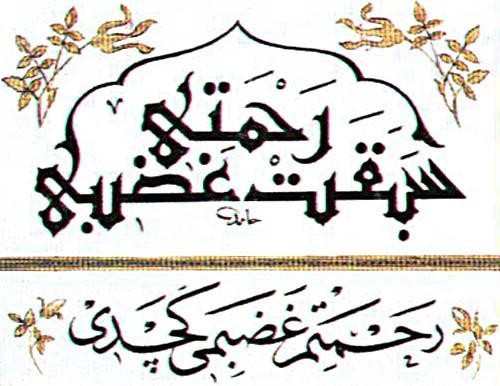 رَحْمَتي
سَبَقَتْ غَضَبي
حامد
رحمتم غضبمی کچدی